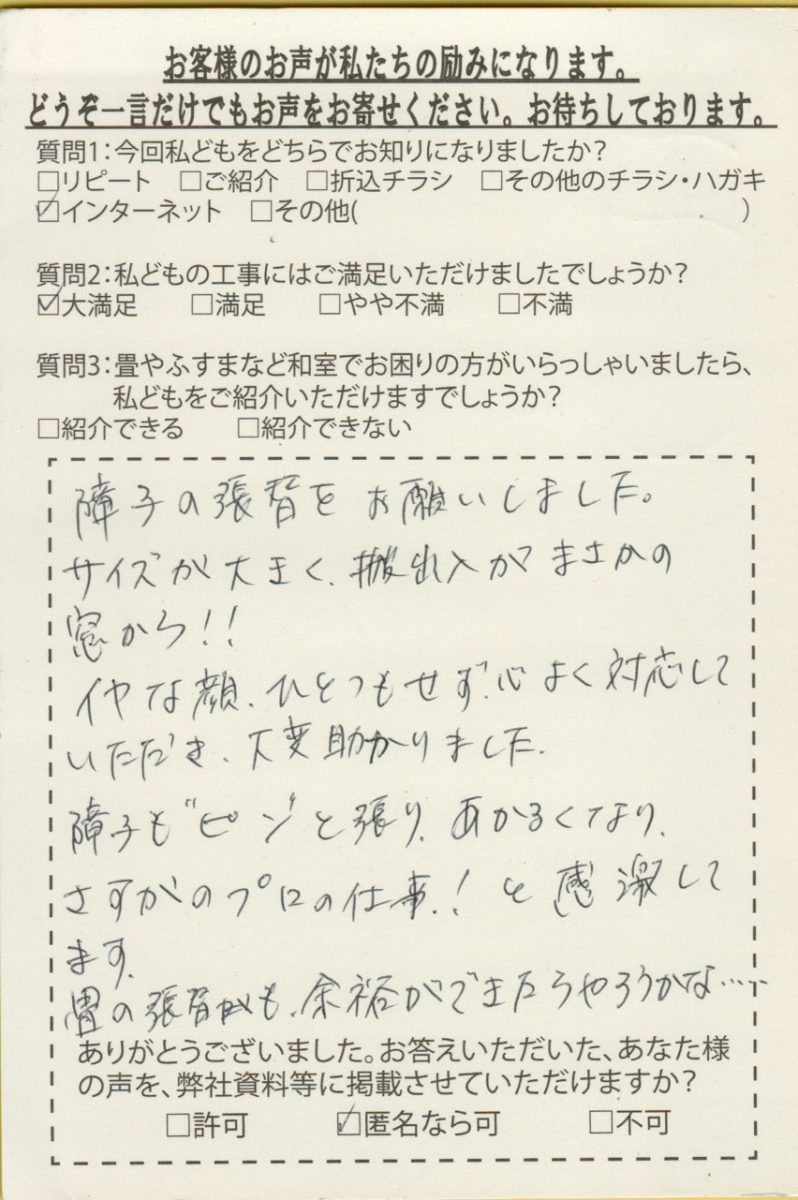 お客様のお声が私たちの励みになります。
どうぞ一言だけでもお声をお寄せください。お待ちしております。
質問1:今回私どもをどちらでお知りになりましたか?
□リピート □ご紹介 □折込チラシ □その他のチラシ・ハガキ
☑インターネット □その他( )
質問2:私どもの工事にはご満足いただけましたでしょうか?
☑大満足 □満足 □やや不満 □不満
質問3:畳やふすまなど和室でお困りの方がいらっしゃいましたら、
私どもをご紹介いただけますでしょうか?
□紹介できる □紹介できない
障子の張替をお願いしました。
サイズが大きく、搬出入がまさかの
窓から!!
イヤな顔、ひとつもせず、心よく対応して
いただき、大変助かりました。
障子も"ピン"と張り、あかるくなり、
さすがのプロの仕事!と感激して
ます。
畳の張替も、余裕ができたらやろうかな……
ありがとうございました。お答えいただいた、あなた様
の声を、弊社資料等に掲載させていただけますか?
□許可 ☑匿名なら可 □不可